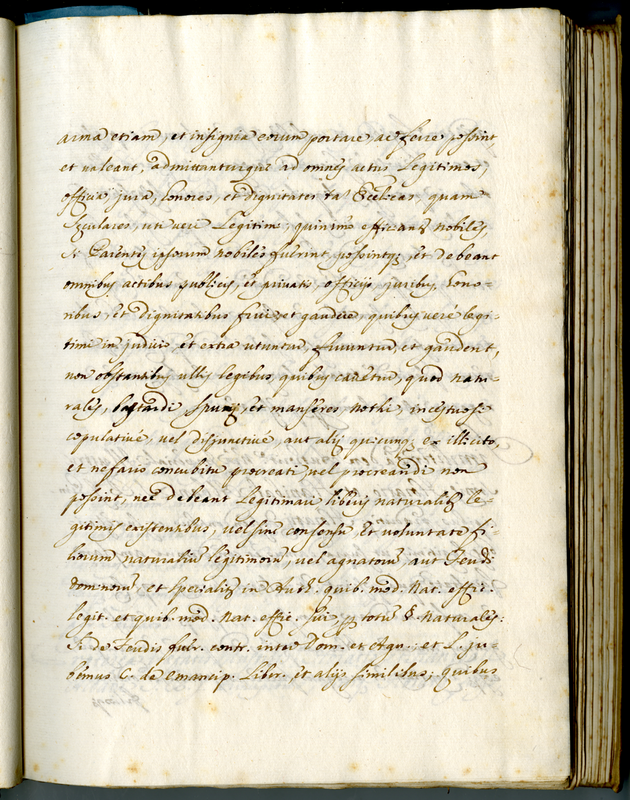 arma etiam, et insignia eorum portare, ac ferre possint,
et valeant, admittanturque ad omnes actus Legitimos,
officia, jura, honores, et dignitates ta' Eccleeas, quam
Sęculares, uti veri Legitimi, quinimo efficiantʳ nobiles,
si Parentes ipsorum nobiles fuerint, possintq₃, et debeant
omnibus actibus publicis, et privatis, officijs, juribus, hono=
ribus, et dignitatibus frui, et gaudere, quibus verè legi=
timi in judicio et extra utuntur, fruuntur, et gaudent,
non obstantibus ullis legibus, quibus cavetur, quod natu=
rales, bastardi, spurij, et manseres, nothi, incestuosi
copulativè, vel disjunctivè, aut alij quicunq₃ ex illicito,
et nefario concubitu procreati, vel procreandi non
possint, nec debeant Legitimari liberis naturalib₃ le=
gitimis existentibus, vel sine consensu et voluntate fi=
liorum naturaliu' legitimoru', vel agnatoru', aut Feudi
dominoru', et specialit' in Auth. quib. mod. Nat. effic.
legit. et quib. mod. Nat. effic. sui p totu' §. Naturales:
Si de Feudis fuer. contr. inter Dom. et Agn.; et L. ju=
bemus C. de emancip. Liber. et alijs similibus; quibus